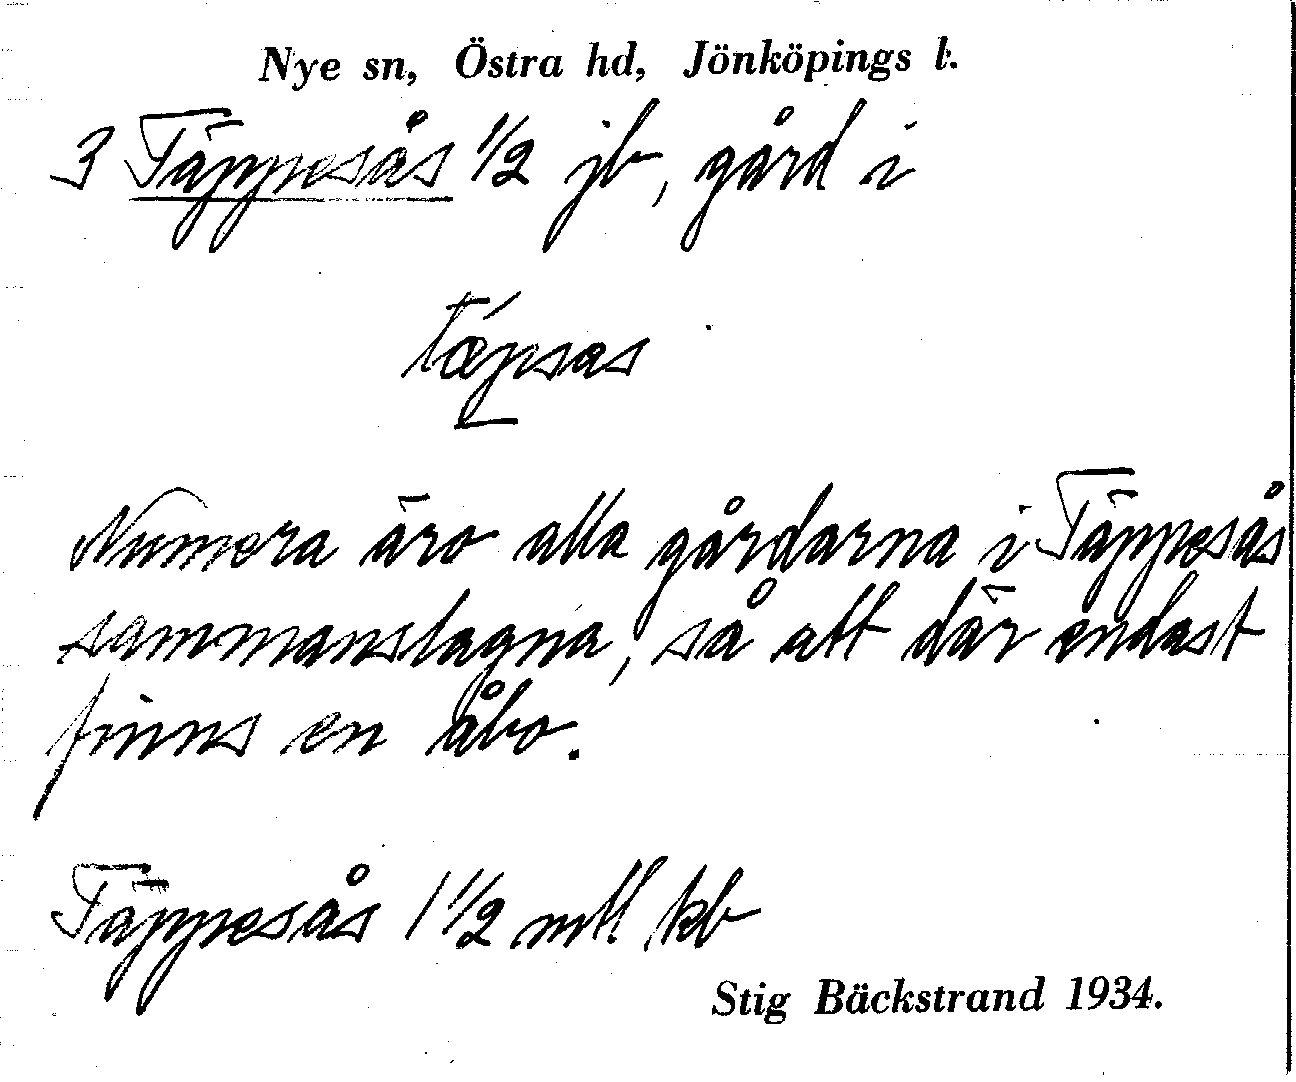 Nye sn, Östra hd, Jönköpings l.
3 Täppesås 1/2 jb, gård i
tǽpsas
Numera äro alla gårdarna i Täppesås
sammanslagna, så att där endast
finns en åbo.
Täppesås 1 1/2 mtl kb
Stig Bäckstrand 1934.